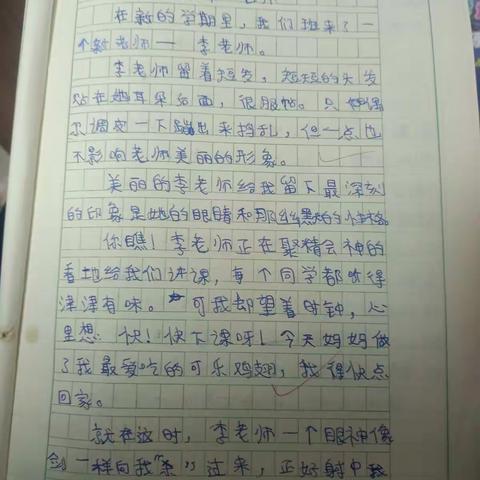 在新的学期里，我们班来了一
个新老师— 李老师。
李老师留着短发，短短的头发
贴在她耳朵后面，很服帖。只有偶
尔调皮一下蹦出来捣乱，但一点也
不影响老师美丽的形象。
美丽的李老师给我留下最深刻
的印象是她的眼睛和那幽默的性格。
你瞧！李老师正在聚精会神的
看地给我们讲课，每个同学都听得
津津有味。可我却望着时钟，心
里想：快！快下课呀！今天妈妈做
了我最爱吃的可乐鸡翅，我得快点
回家。
就在这时，李老师一个眼神像
剑一样向我"杀"过来，正好射中我